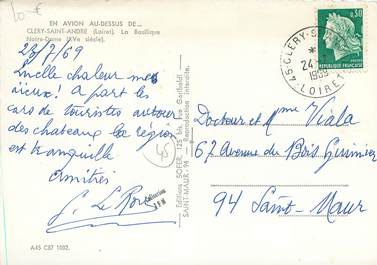 10 €
EN AVION AU-DESSUS DE...
CLERY-SAINT-ANDRÉ (Loiret). La Basilique
Notre-Dame (XVe siècle).
23/7/69
Quelle chaleur mes
vieux! A part les
cars de touristes autour
des chateaux la région
est tranquille
Amitiés
45
A45 C87 1002.
Editions SOFER, 125 bis, rue Garibaldi
SAINT-MAUR - 94 Reproduction interdite.
Collection
0,30
REPUBLIQUE FRANÇAISE
45-CLERY-S
24
1969
LOIRET
Docteur et Mme Viala
67 Avenue du Bois Guimier
94 Saint-Maur